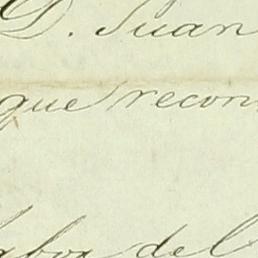 D. Juan
que recon
labor del